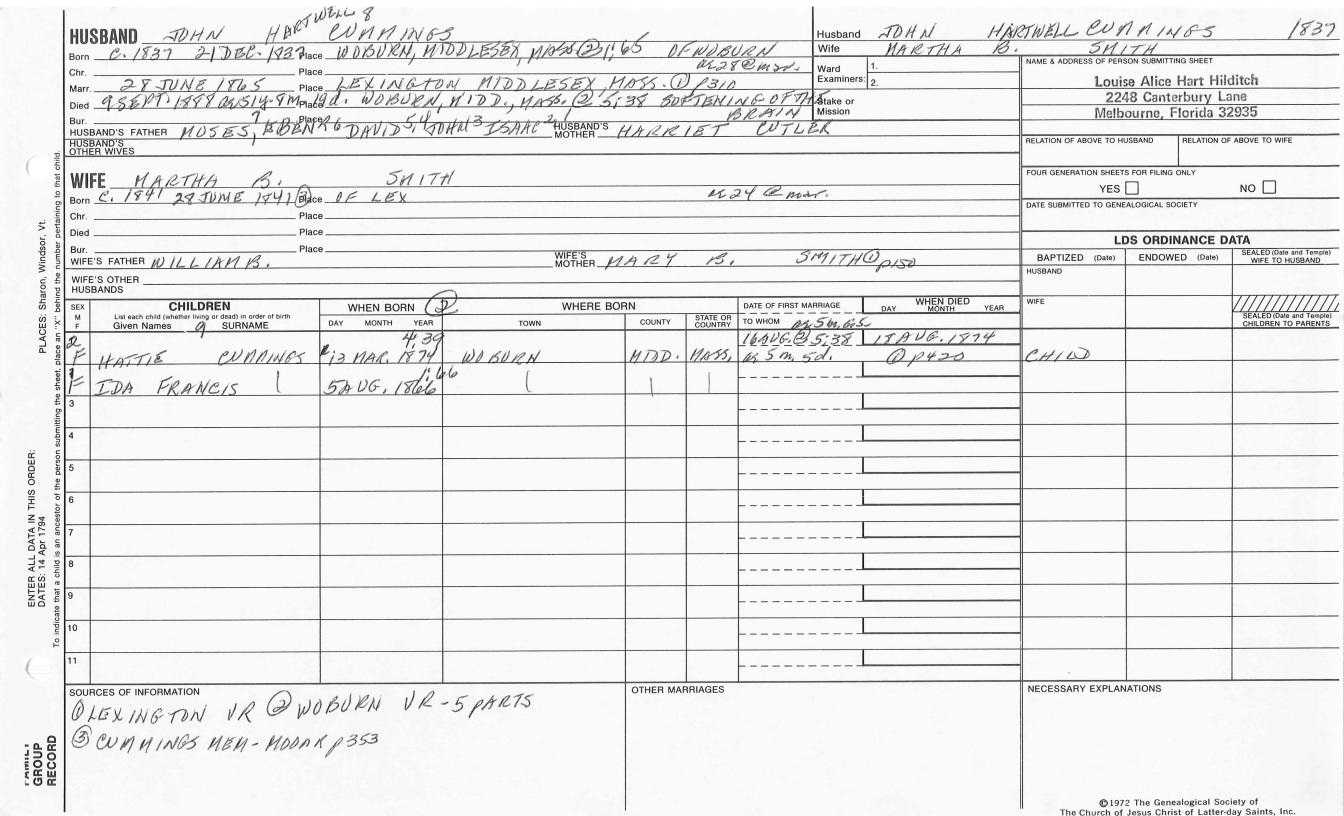 HUSBAND JOHN HARTWELL 8 CUMMINGS
Born C. 1837 21 DEC. 1837 Place WOBURN, MIDDLESEX, MASS ② 1:65 OF WOBURN
Chr. Place ae 28 @ mar.
Marr. 28 JUNE 1865 Place LEXINGTON MIDDLESEX MASS. ① p310
Died 9 SEPT. 1888 ae 51y-8m-19d. Place WOBURN, MIDD., MASS. ② 5:38 SOFTENING OF THE
Bur. Place BRAIN
HUSBAND'S FATHER MOSES 7, EBENR 6 DAVID 5,4 JOHN 3 ISAAC 2,1 HUSBAND'S MOTHER HARRIET CUTLER
HUSBAND'S OTHER WIVES
WIFE MARTHA B. SMITH
Born C. 1841 28 JUNE 1841 ③ Place OF LEX ae 24 @ mar.
Chr. Place
Died Place
Bur. Place
WIFE'S FATHER WILLIAM B. WIFE'S MOTHER MARY B. SMITH ① p150
WIFE'S OTHER HUSBANDS
Husband JOHN HARTWELL CUMMINGS 1837
Wife MARTHA B. SMITH
Ward Examiners: 1.
2.
Stake or Mission
NAME & ADDRESS OF PERSON SUBMITTING SHEET
Louise Alice Hart Hilditch
2248 Canterbury Lane
Melbourne, Florida 32935
RELATION OF ABOVE TO HUSBAND RELATION OF ABOVE TO WIFE
FOUR GENERATION SHEETS FOR FILING ONLY
YES NO
DATE SUBMITTED TO GENEALOGICAL SOCIETY
LDS ORDINANCE DATA
BAPTIZED (Date) ENDOWED (Date) SEALED (Date and Temple) WIFE TO HUSBAND
HUSBAND
WIFE
SEALED (Date and Temple) CHILDREN TO PARENTS
SEX M F CHILDREN WHEN BORN ② WHERE BORN DATE OF FIRST MARRIAGE WHEN DIED
List each child (whether living or dead) in order of birth
Given Names 9 SURNAME DAY MONTH YEAR TOWN COUNTY STATE OR COUNTRY TO WHOM ae 5m. 6s. DAY MONTH YEAR
2 4:39 16 AUG. ② 5:38 17 AUG. 1874
F HATTIE CUMMINGS 12 MAR. 1874 WOBURN MIDD. MASS. ae 5m. 5d. @ p420 CHILD
1 1:66
F IDA FRANCIS 5 AUG. 1866
3
4
5
6
7
8
9
10
11
SOURCES OF INFORMATION
① LEXINGTON VR ② WOBURN VR - 5 PARTS
③ CUMMINGS MEM - MOOAR p353
OTHER MARRIAGES
NECESSARY EXPLANATIONS
PLACES: Sharon, Windsor, Vt.
ENTER ALL DATA IN THIS ORDER:
DATES: 14 Apr 1794
To indicate that a child is an ancestor of the person submitting the sheet, place an "X" behind the number pertaining to that child.
FAMILY GROUP RECORD
©1972 The Genealogical Society of
The Church of Jesus Christ of Latter-day Saints, Inc.